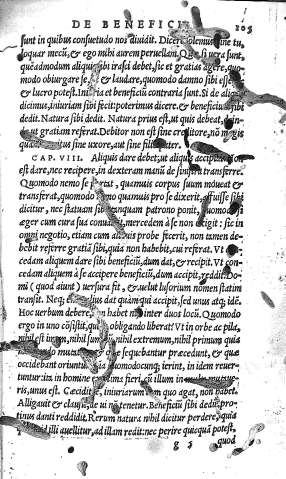 DE BENEFICIIS 205
sunt in quibus consuetudo nos diuidit. Dicere solemus sine tu,
loquar mecũ, & ego mihi aurem peruellam. Quæ si vera sunt,
quẽadmodum aliquis sibi irasci debet, sic et gratias agere, quo
modo obiurgare se, & laudare, quomodo damno sibi esse
& lucro potest. Iniuria et beneficiũ contraria sunt. Si de aliquo
dicimus, iniuriam sibi fecit: poterimus dicere. & beneficiũ sibi
dedit. Natura sibi dedit. Natura prius est, ut quis debeat,
ut gratiam referat. Debitor non est sine creditore, nõ magis
sine uxore, aut sine filio
CAP. VIII. Aliquis dare debet, ut aliquis accipiat.
est dare, nec recipere, in dexteram manũ de sinistra transferre.
Quomodo nemo se quamuis corpus suum moueat &
transferat, quomodo nemo quamuis pro se dixerit, affuisse sibi
dicitur, nec statuam sibi tanquam patrono ponit,
æger cum cura sua conualuit, mercedem à se non exigit: sic in
omni negotio, etiam cum aliquis probe fecerit, non tamen de-
bebit referre gratiã sibi, quia non habebit, cui referat. Vt con
cedam aliquem dare sibi beneficiũ, dum dat, & recipit. Vt con
cedam aliquem à se accipere beneficiũ, dum accipit, reddit. Do-
mi (quod aiunt) uersura fit, & uelut lusorium nomen statim
transit. Neq; alius dat quàm qui accipit, sed unus atq; idẽ.
Hoc uerbum debere, non habet nisi inter duos locũ. Quomodo
ergo in uno cõsistit, qui obligando liberat? Vt in orbe ac pila,
nihil est imum, nihil summũ, nihil extremum, nihil primum quia
motu quæ sequebantur præcedunt, & quæ
occidebant oriuntur quomodocunq; ierint, in idem reuer-
tuntur: ita in homine fieri, cũ illum in
ris, unus est. Cecidit iniuriarum quo agat, non habet.
Alligauit & clausit, de ui nõ tenetur. Beneficiũ sibi dedit, pro-
tinus danti reddidit. Rerum natura nihil dicitur perdere, quia
illi auellitur, ad illam redit: nec perire quicquã potest,
g 5 quod